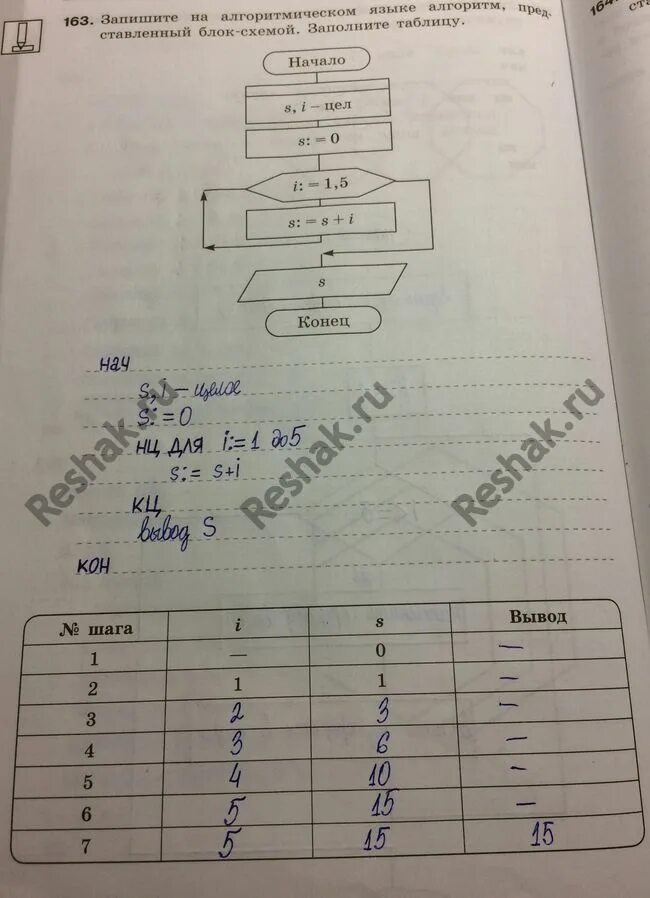 163. Запишите на алгоритмическом языке алгоритм, пред-
ставленный блок-схемой. Заполните таблицу.
164.
Начало
s, i – цел
s: = 0
i: = 1,5
s: = s + i
s
Конец
нач
s, i – целое
s: = 0
нц для i:= 1 до 5
s: = s+i
кц
вывод S
кон
Reshak.ru Reshak.ru Reshak.ru
№ шага i s Вывод
1 — 0 —
2 1 1 —
3 2 3 —
4 3 6 —
5 4 10 —
6 5 15 —
7 5 15 15